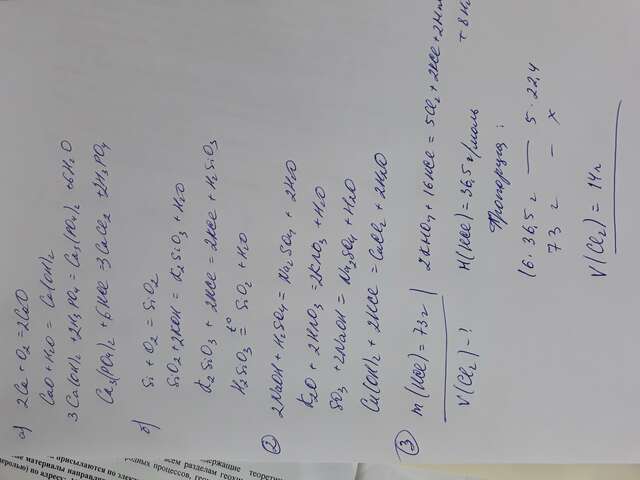 а) 2Ca + O₂ = 2CaO
CaO + H₂O = Ca(OH)₂
3Ca(OH)₂ + 2H₃PO₄ = Ca₃(PO₄)₂ + 6H₂O
Ca₃(PO₄)₂ + 6HCl = 3CaCl₂ + 2H₃PO₄
б) Si + O₂ = SiO₂
SiO₂ + 2KOH = K₂SiO₃ + H₂O
K₂SiO₃ + 2HCl = 2KCl + H₂SiO₃
H₂SiO₃ t°= SiO₂ + H₂O
② 2NaOH + H₂SO₄ = Na₂SO₄ + 2H₂O
K₂O + 2HNO₃ = 2KNO₃ + H₂O
SO₃ + 2NaOH = Na₂SO₄ + H₂O
Cu(OH)₂ + 2HCl = CuCl₂ + 2H₂O
③ m(HCl) = 73г | 2KMnO₄ + 16HCl = 5Cl₂ + 2KCl + 2Mn
+ 8H₂
V(Cl₂) - ? M(HCl) = 36,5 г/моль
Пропорция:
16 · 36,5 г — 5 · 22,4
73 г — x
V(Cl₂) = 14 л
присылаются по элект
материалы направля